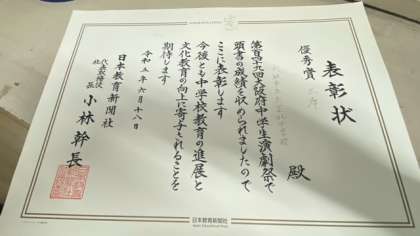 表彰状
優秀賞
殿
第百四十九回大阪府中学生演劇祭で
頭書の成績を収められましたので
ここに表彰します
今後とも中学校教育の進展と
文化教育の向上に寄与されることを
期待します
令和五年六月十八日
日本教育新聞社
代表取締役
社長 小林幹長
日本教育新聞社